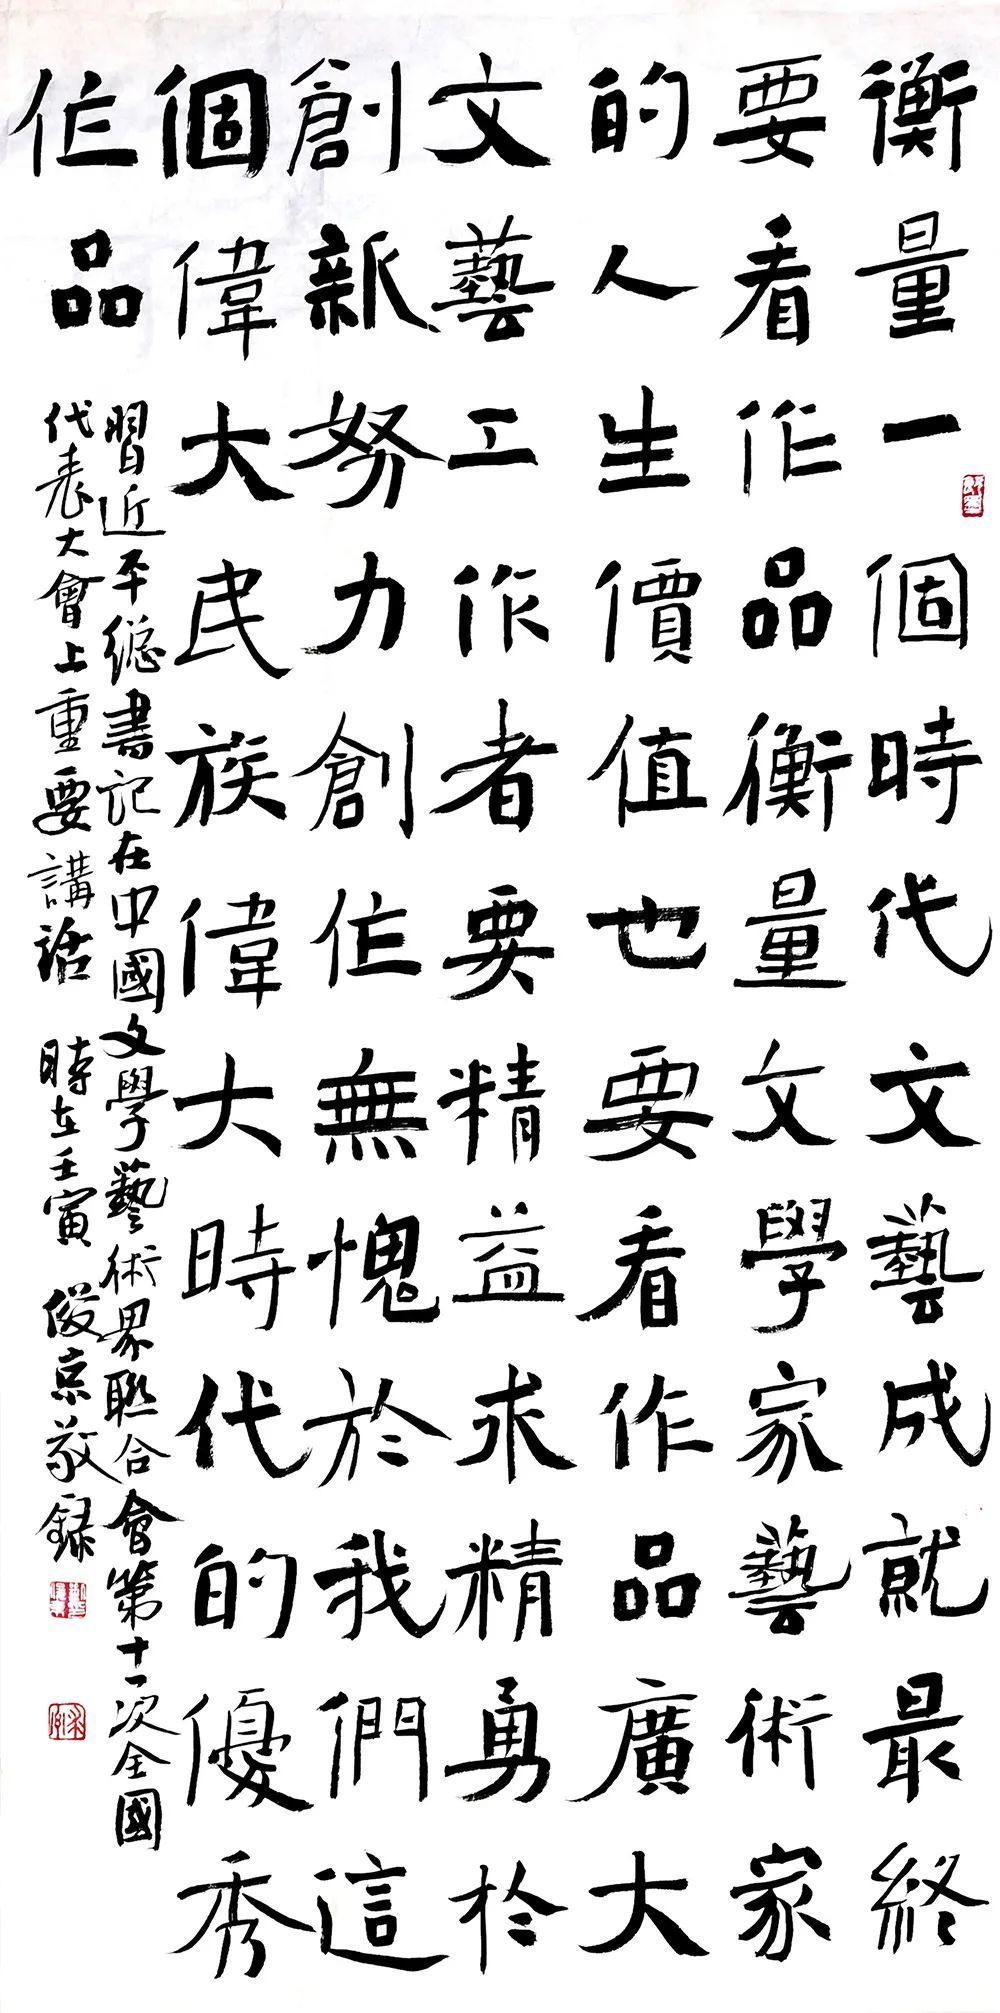 衡量一個時代文藝成就最終
要看作品衡量文學家藝術家
的人生價值也要看作品廣大
文藝工作者要精益求精勇於
創新努力創作無愧於我們這
個偉大民族偉大時代的優秀
作品
習近平總書記在中國文學藝術界聯合會第十一次全國
代表大會上重要講話 時在壬寅 俊京敬錄